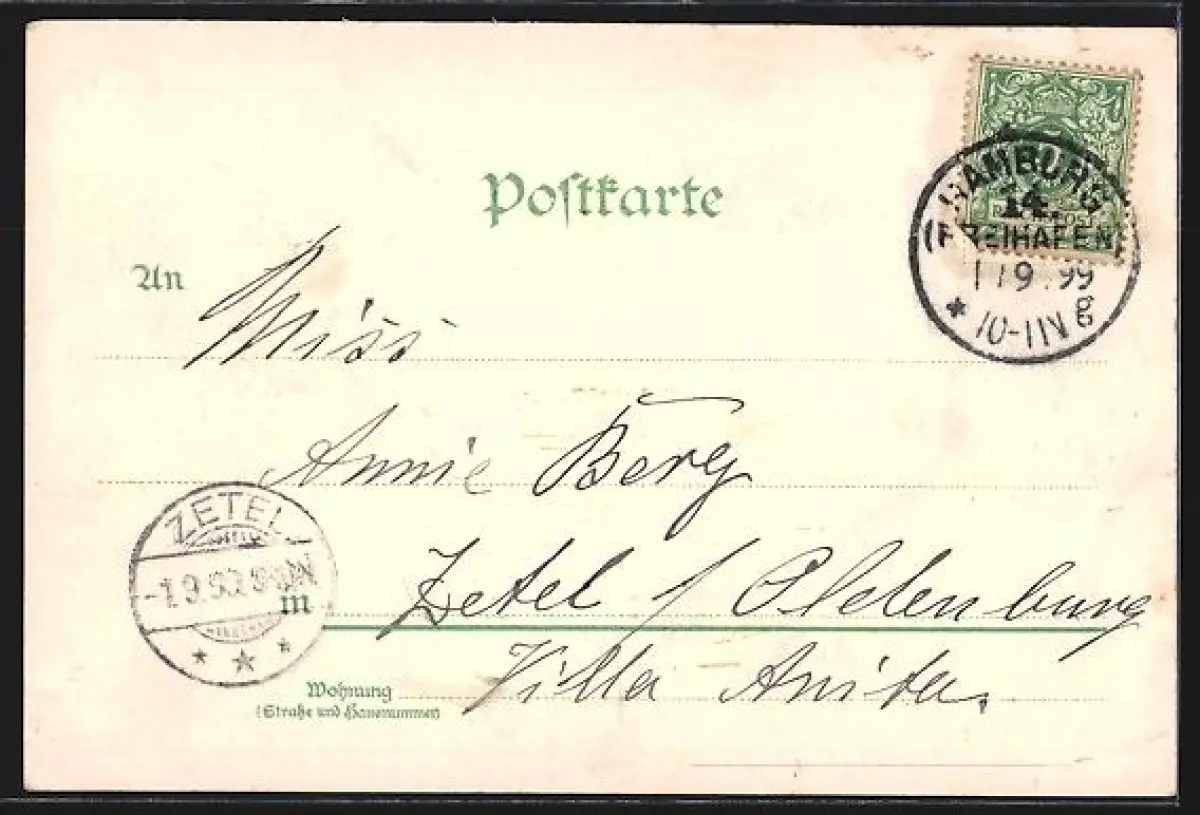 Postkarte
HAMBURG
14.
(FREIHAFEN)
1/9.99
* 10-11N g
An
Miss
Annie Berg
ZETEL
-1.9.
in
Zetel / Oldenburg
* * *
Villa Anita.
Wohnung
(Straße und Hausnummer)